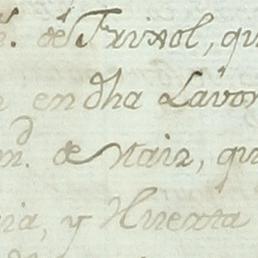 de Frixol, qu
en dha Lavor
de Nair, qu
ia, y Huerta